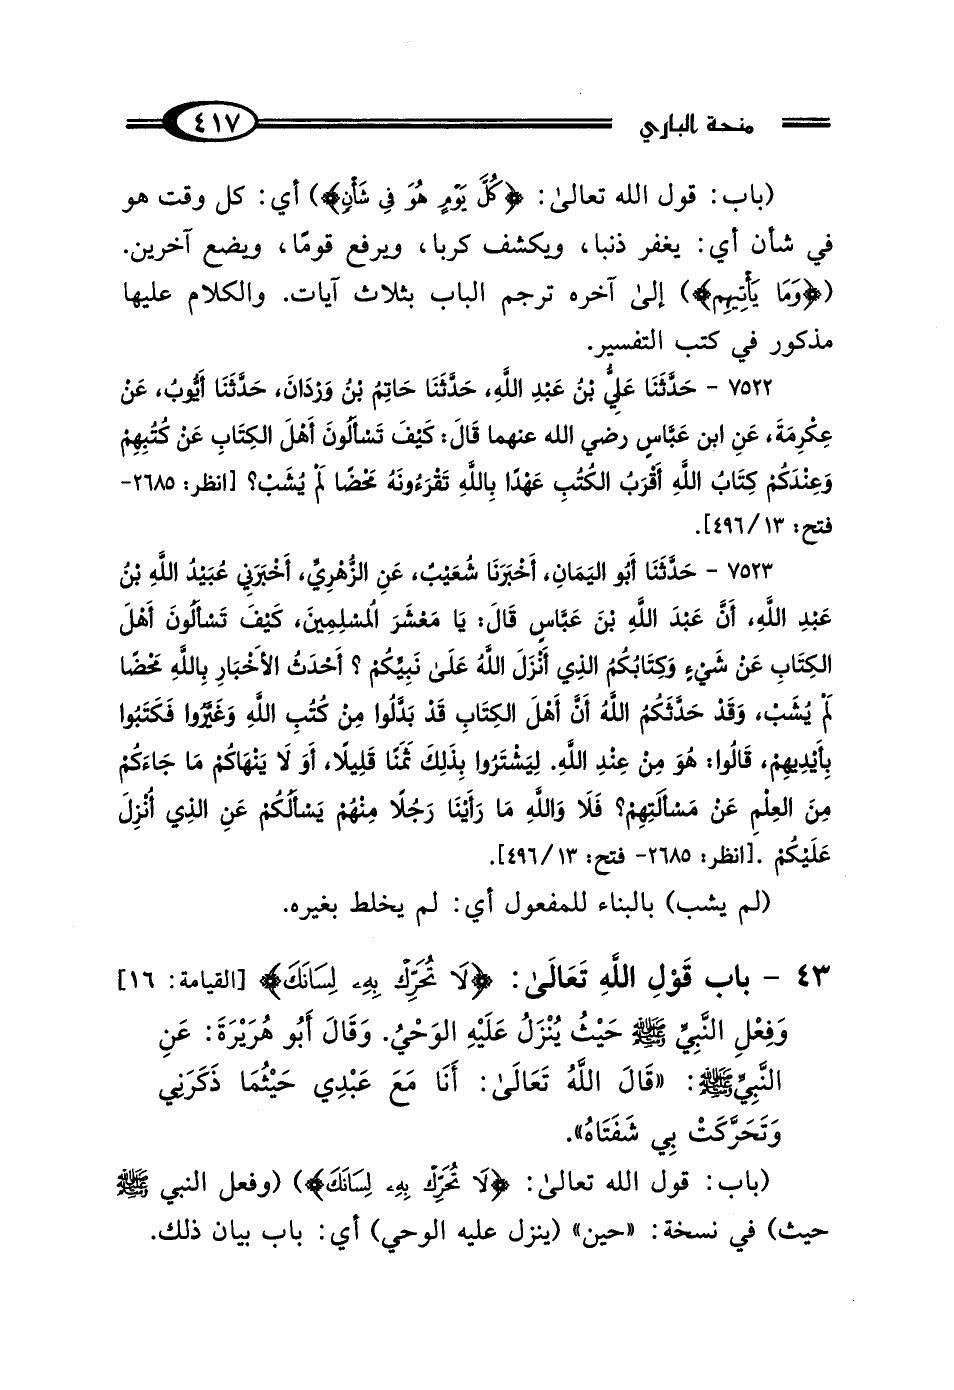 منحة الباري
٤١٧
(باب: قول الله تعالىٰ: ﴿كُلَّ يَوْمٍ هُوَ فِي شَأْنٍ﴾) أي: كل وقت هو
في شأن أي: يغفر ذنبا، ويكشف كربا، ويرفع قومًا، ويضع آخرين.
(﴿وَمَا يَأْتِيهِم﴾) إلىٰ آخره ترجم الباب بثلاث آيات. والكلام عليها
مذكور في كتب التفسير.
٧٥٢٢ - حَدَّثَنَا عَلِيُّ بْنُ عَبْدِ اللَّهِ، حَدَّثَنَا حَاتِمُ بْنُ وَرْدَانَ، حَدَّثَنَا أَيُّوبُ، عَنْ
عِكْرِمَةَ، عَنِ ابن عَبَّاسٍ رضي الله عنهما قَالَ: كَيْفَ تَسْأَلُونَ أَهْلَ الكِتَابِ عَنْ كُتُبِهِمْ
وَعِنْدَكُمْ كِتَابُ اللَّهِ أَقْرَبُ الكُتُبِ عَهْدًا بِاللَّهِ تَقْرَءُونَهُ مَحْضًا لَمْ يُشَبْ؟ [انظر: ٢٦٨٥-
فتح: ٤٩٦/١٣].
٧٥٢٣ - حَدَّثَنَا أَبُو اليَمَانِ، أَخْبَرَنَا شُعَيْبٌ، عَنِ الزُّهْرِيِّ، أَخْبَرَنِي عُبَيْدُ اللَّهِ بْنُ
عَبْدِ اللَّهِ، أَنَّ عَبْدَ اللَّهِ بْنَ عَبَّاسٍ قَالَ: يَا مَعْشَرَ المُسْلِمِينَ، كَيْفَ تَسْأَلُونَ أَهْلَ
الكِتَابِ عَنْ شَيْءٍ وَكِتَابُكُمُ الذِي أَنْزَلَ اللَّهُ عَلَىٰ نَبِيِّكُمْ ؟ أَحْدَثُ الأَخْبَارِ بِاللَّهِ مَحْضًا
لَمْ يُشَبْ، وَقَدْ حَدَّثَكُمُ اللَّهُ أَنَّ أَهْلَ الكِتَابِ قَدْ بَدَّلُوا مِنْ كُتُبِ اللَّهِ وَغَيَّرُوا فَكَتَبُوا
بِأَيْدِيهِمْ، قَالُوا: هُوَ مِنْ عِنْدِ اللَّهِ. لِيَشْتَرُوا بِذَلِكَ ثَمَنًا قَلِيلًا، أَوَ لَا يَنْهَاكُمْ مَا جَاءَكُمْ
مِنَ العِلْمِ عَنْ مَسْأَلَتِهِمْ؟ فَلَا وَاللَّهِ مَا رَأَيْنَا رَجُلًا مِنْهُمْ يَسْأَلُكُمْ عَنِ الذِي أُنْزِلَ
عَلَيْكُمْ .[انظر: ٢٦٨٥- فتح: ٤٩٦/١٣].
(لم يشب) بالبناء للمفعول أي: لم يخلط بغيره.
٤٣ - باب قَوْلِ اللَّهِ تَعَالَىٰ: ﴿لَا تُحَرِّكْ بِهِۦ لِسَانَكَ﴾ [القيامة: ١٦]
وَفِعْلِ النَّبِيِّ ﷺ حَيْثُ يُنْزَلُ عَلَيْهِ الوَحْيُ. وَقَالَ أَبُو هُرَيْرَةَ: عَنِ
النَّبِيِّ ﷺ: «قَالَ اللَّهُ تَعَالَىٰ: أَنَا مَعَ عَبْدِي حَيْثُمَا ذَكَرَنِي
وَتَحَرَّكَتْ بِي شَفَتَاهُ».
(باب: قول الله تعالىٰ: ﴿لَا تُحَرِّكْ بِهِۦ لِسَانَكَ﴾) (وفعل النبي ﷺ
حيث) في نسخة: «حين» (ينزل عليه الوحي) أي: باب بيان ذلك.